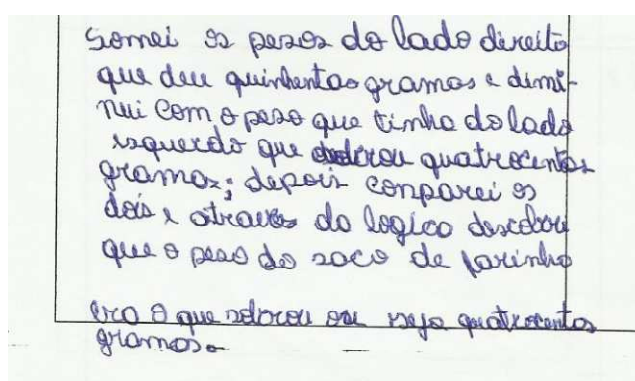 Somei os pesos do lado direito
que deu quinhentas gramas e dimi-
nui com o peso que tinha do lado
esquerdo que sobrou quatrocentas
gramas; depois conparei os
dois e atraves da logica descobri
que o peso do saco de farinha
era o que sobrou ou seja quatrocentos
gramas.